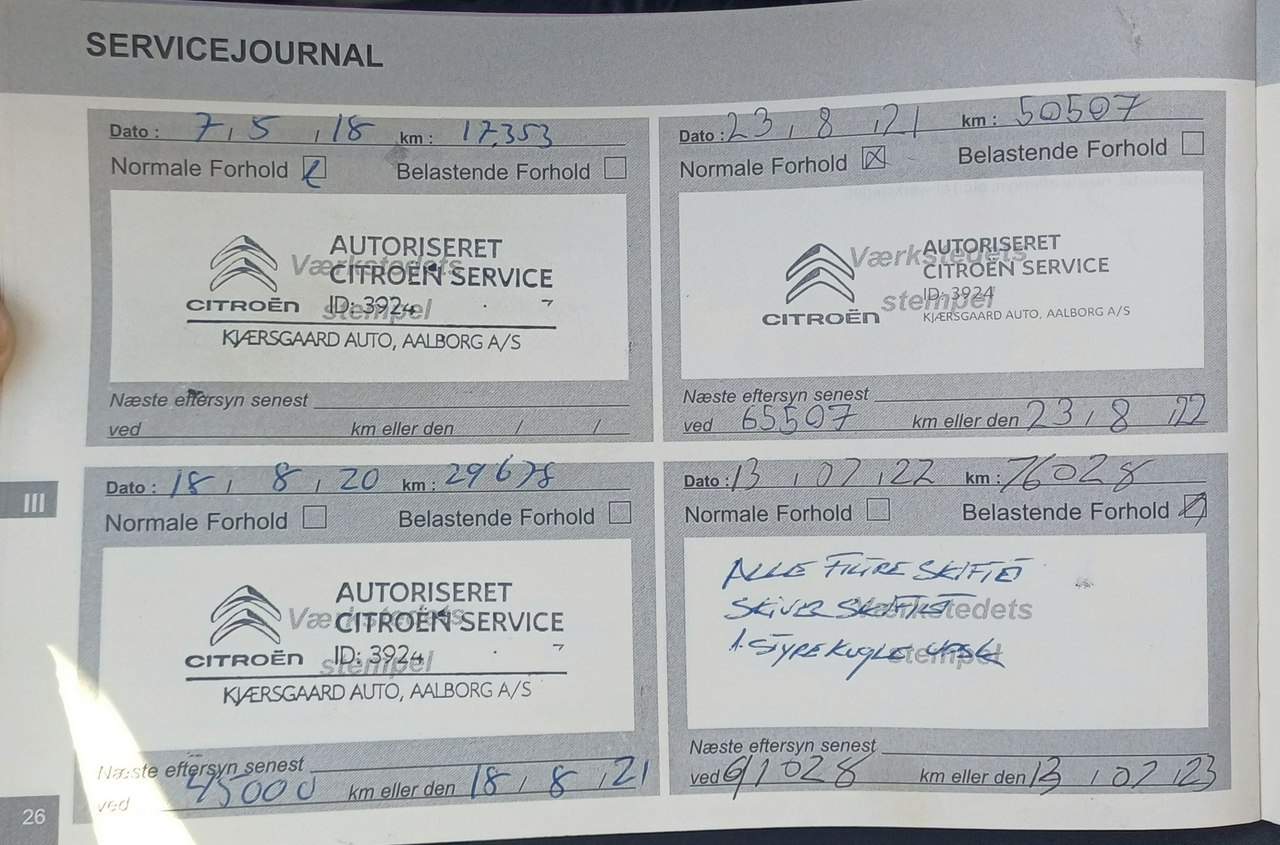 SERVICEJOURNAL
Dato : 7, 5, 18 km : 17.353
Normale Forhold Belastende Forhold
Værkstedets stempel
AUTORISERET
CITROËN SERVICE
CITROËN ID: 3924
KJÆRSGAARD AUTO, AALBORG A/S
Næste eftersyn senest
ved km eller den / /
Dato : 23, 8, 21 km : 50507
Normale Forhold Belastende Forhold
Værkstedets stempel
AUTORISERET
CITROËN SERVICE
ID: 3924
CITROËN KJÆRSGAARD AUTO, AALBORG A/S
Næste eftersyn senest
ved 65507 km eller den 23, 8, 22
Dato : 18, 8, 20 km : 29678
Normale Forhold Belastende Forhold
Værkstedets stempel
AUTORISERET
CITROËN SERVICE
CITROËN ID: 3924
KJÆRSGAARD AUTO, AALBORG A/S
Næste eftersyn senest
ved 45000 km eller den 18, 8, 21
Dato : 13, 07, 22 km : 76028
Normale Forhold Belastende Forhold
Værkstedets stempel
ALLE FILTRE SKIFTET
SKIVER SKIFTET
1. STYREKUGLE
Næste eftersyn senest
ved 91028 km eller den 13, 07, 23
III
26